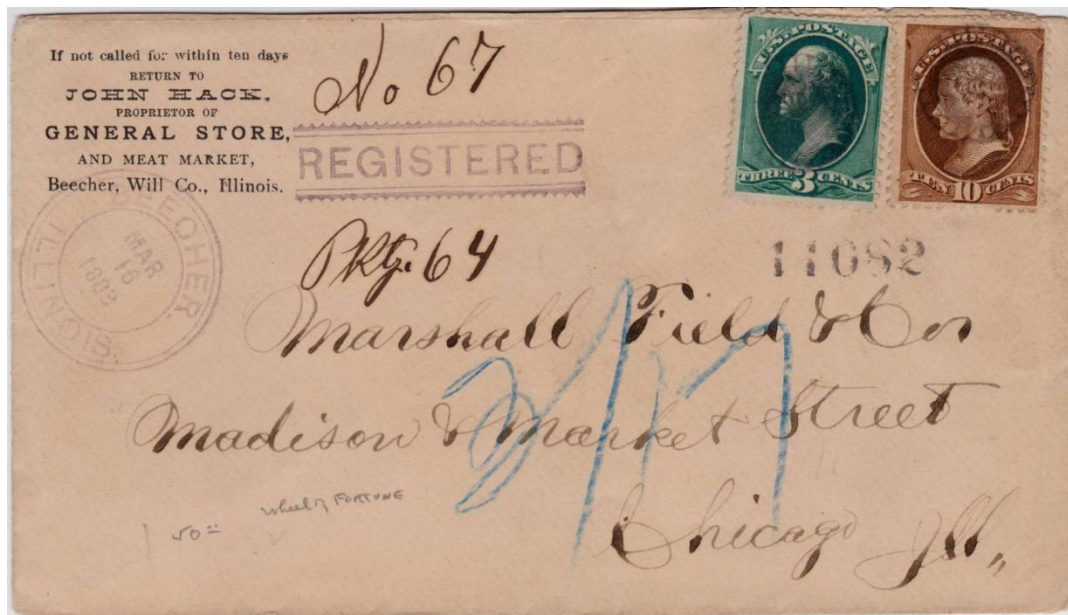 If not called for within ten days
RETURN TO
JOHN HACK,
PROPRIETOR OF
GENERAL STORE,
AND MEAT MARKET,
Beecher, Will Co., Illinois.
No 67
REGISTERED
Pkg. 64
U.S. POSTAGE
THREE 3 CENTS
U.S. POSTAGE
TEN 10 CENTS
11082
BEECHER
MAR
16
1883
ILLINOIS
Marshall Field & Co
Madison & Market Street
Chicago Ill,,
wheel of FORTUNE
50